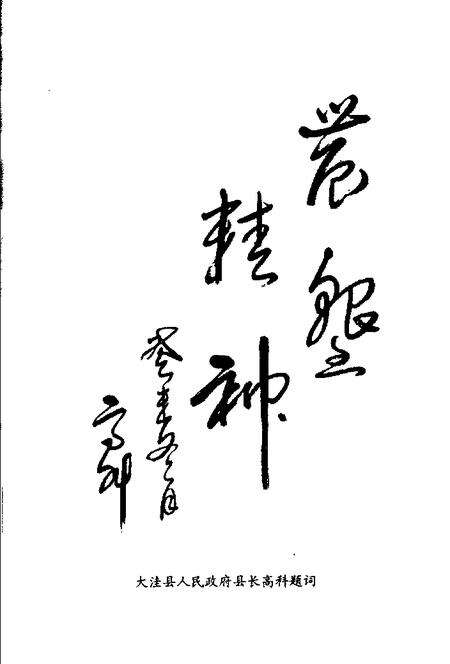 農墾
精神
癸未冬月
高科
大洼县人民政府县长高科题词